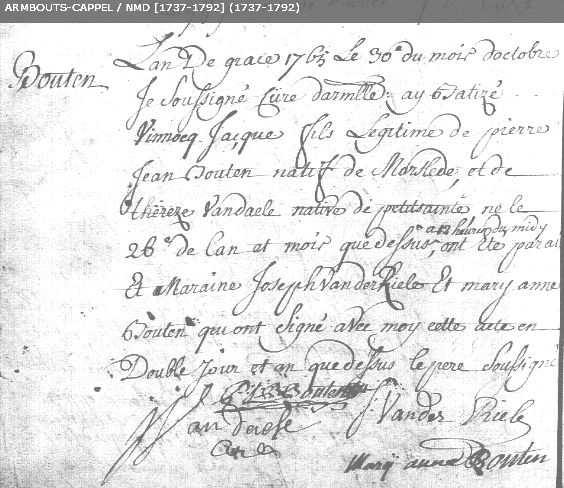 ARMBOUTS-CAPPEL / NMD [1737-1792] (1737-1792)
Bouten
Lan De grace 1763 Le 30e du mois doctobre
Je Soussigné Cure darmlle: ay Batizé
Vinnocq Jacque fils Legitime de pierre
Jean Bouten natif de Morslede, et de
thereze Vandaele native de petitsainte ne le
a 12 heures du midy
26e de lan et mois que dessus, ont ete parai
Et Maraine Joseph VanderRiele Et mary anne
Bouten qui ont signé avec moy cette acte en
Double Jour et an que dessus le pere Soussigné
Bouten
J: Vander Riele
Marÿ anna Bouten